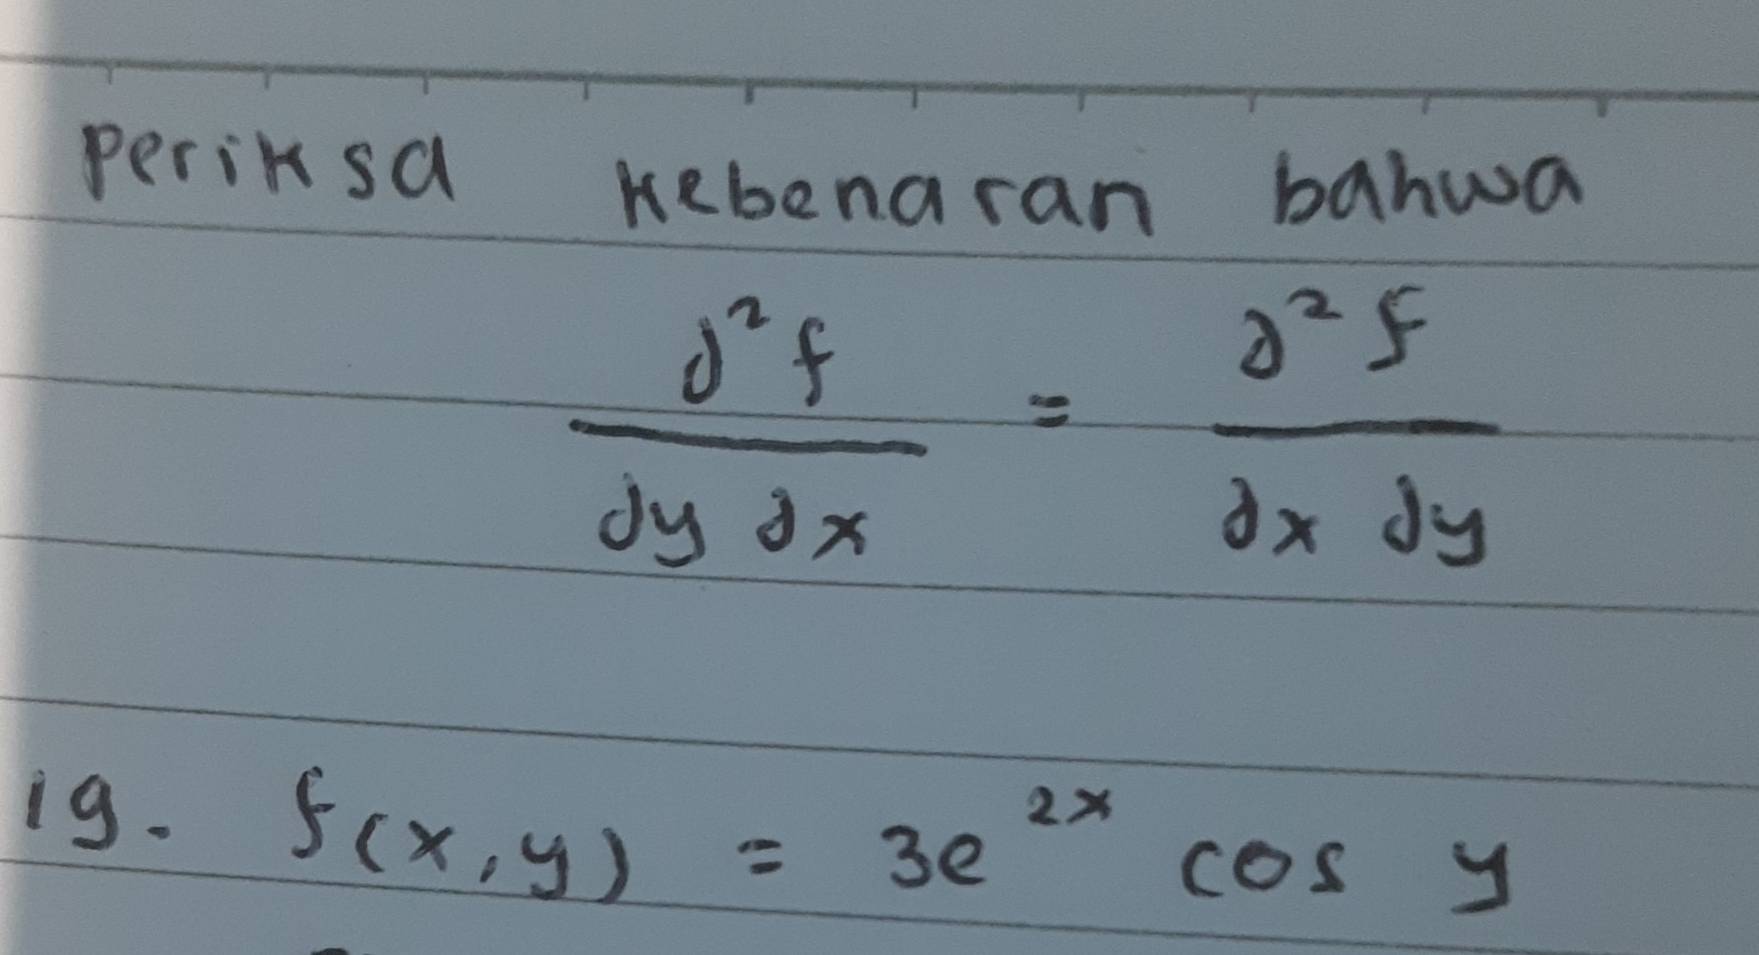 Periksa kebenaran bahwa
∂²f / ∂y ∂x = ∂²f / ∂x ∂y
19. f(x,y) = 3e^{2x} cos y